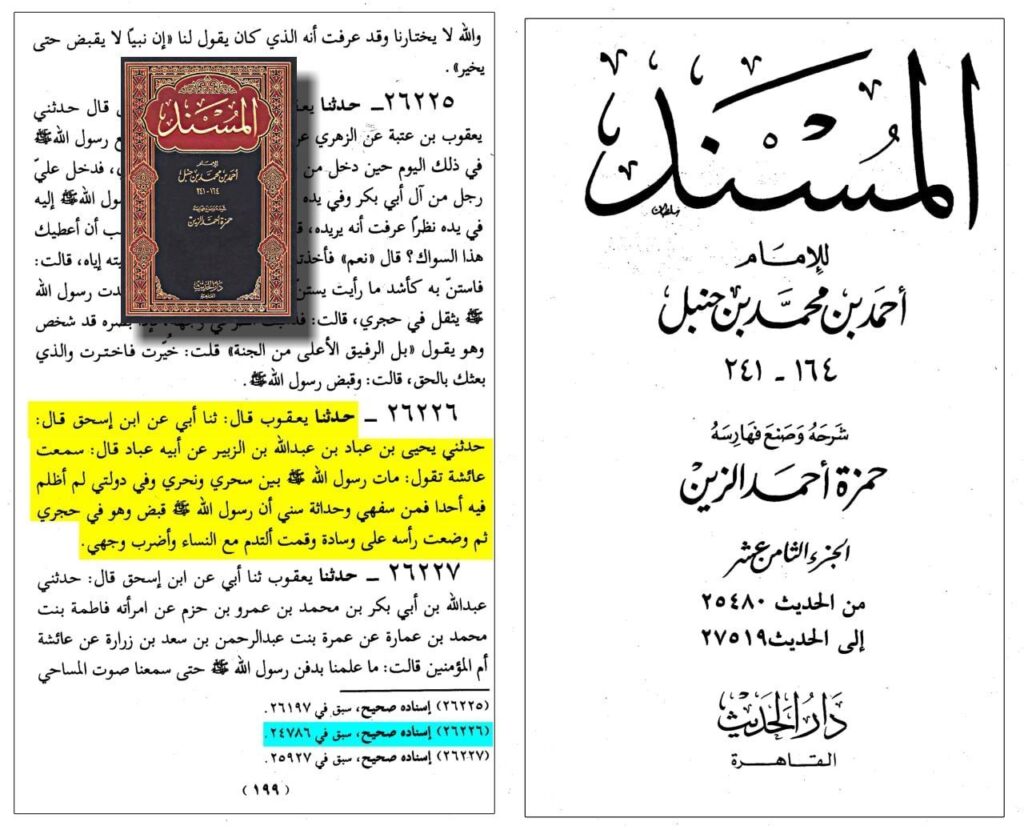 والله لا يختارنا وقد عرفت أنه الذي كان يقول لنا «إن نبيًا لا يقبض حتى
يخير».
٢٦٢٢٥ــ حدثنا قال حدثني
يعقوب بن عتبة عن الزهري رسول الله ﷺ
في ذلك اليوم حين دخل من فدخل عليّ
رجل من آل أبي بكر وفي يده الله ﷺ إليه
في يده نظرًا عرفت أنه يريده، أن أعطيك
هذا السواك؟ قال «نعم» إياه، قالت:
فاستنّ به كأشد ما رأيت رسول الله
ﷺ يثقل في حجري، قالت: قد شخص
وهو يقول «بل الرفيق الأعلى من الجنة» قلت: خُيّرت فاخترت والذي
بعثك بالحق، قالت: وقبض رسول الله ﷺ.
٢٦٢٢٦ ــ حدثنا يعقوب قال: ثنا أبي عن ابن إسحق قال:
حدثني يحيى بن عباد بن عبدالله بن الزبير عن أبيه عباد قال: سمعت
عائشة تقول: مات رسول الله ﷺ بين سحري ونحري وفي دولتي لم أظلم
فيه أحدا فمن سفهي وحداثة سني أن رسول الله ﷺ قبض وهو في حجري
ثم وضعت رأسه على وسادة وقمت ألتدم مع النساء وأضرب وجهي.
٢٦٢٢٧ ــ حدثنا يعقوب ثنا أبي عن ابن إسحق قال: حدثني
عبدالله بن أبي بكر بن محمد بن عمرو بن حزم عن امرأته فاطمة بنت
محمد بن عمارة عن عمرة بنت عبدالرحمن بن سعد بن زرارة عن عائشة
أم المؤمنين قالت: ما علمنا بدفن رسول الله ﷺ حتى سمعنا صوت المساحي
(٢٦٢٢٥) إسناده صحيح، سبق في ٢٦١٩٧.
(٢٦٢٢٦) إسناده صحيح، سبق في ٢٤٧٨٦.
(٢٦٢٢٧) إسناده صحيح، سبق في ٢٥٩٢٧.
(١٩٩)
المسند
للإمام
أحمد بن محمد بن حنبل
١٦٤ - ٢٤١
شرحه وصنع فهارسه
حمزة أحمد الزين
دار الحديث
القاهرة
المُسْنَد
للإمام
أحمد بن محمد بن حنبل
١٦٤ - ٢٤١
شَرَحَهُ وَصَنَعَ فَهَارِسَهُ
حمزة أحمد الزين
الجزء الثامن عشر
من الحديث ٢٥٤٨٠
إلى الحديث ٢٧٥١٩
دار الحديث
القاهرة